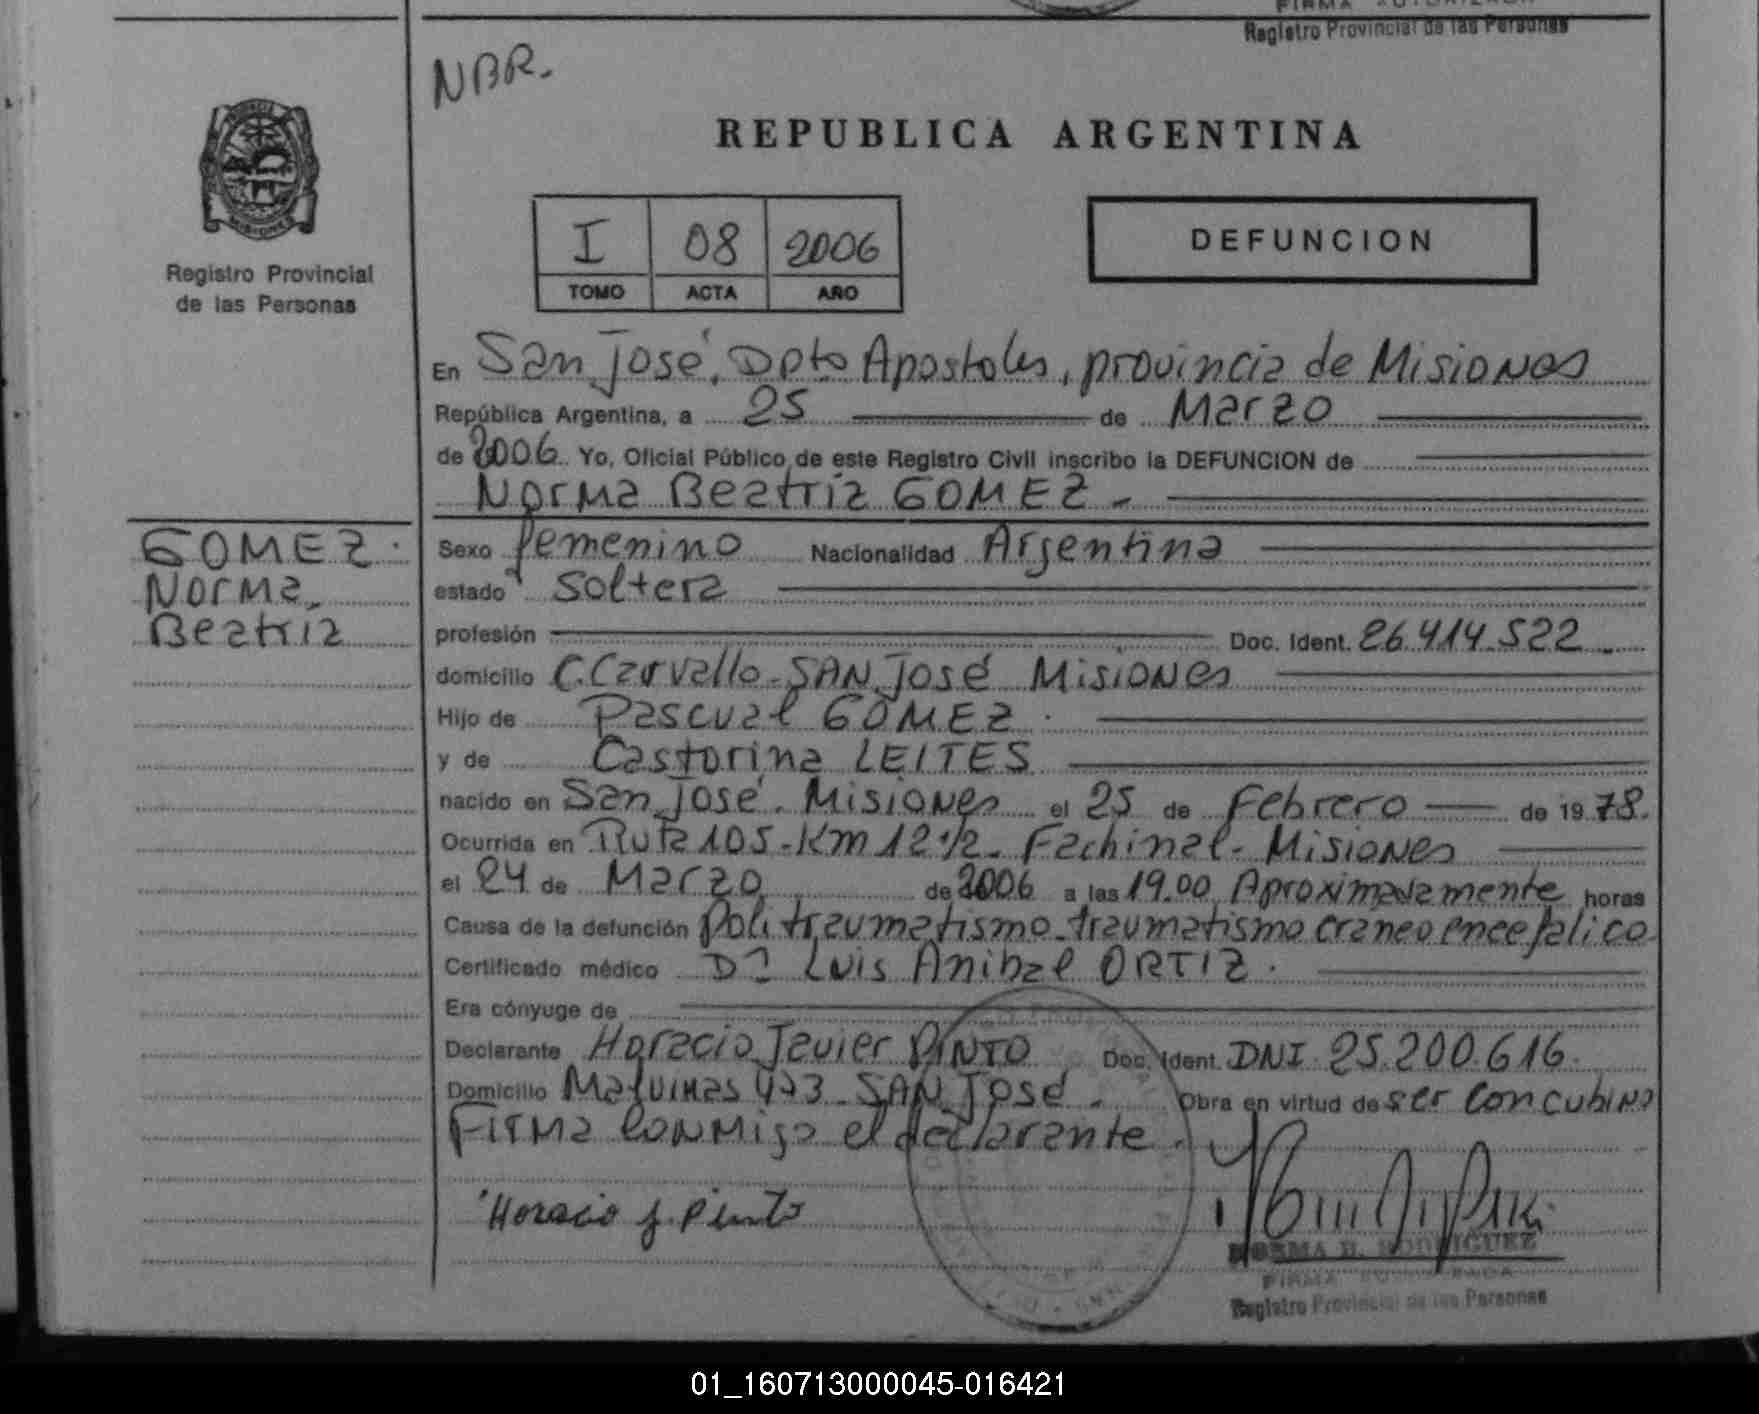 FIRMA AUTORIZADA
Registro Provincial de las Personas
NBR.
REPUBLICA ARGENTINA
I 08 2006
TOMO ACTA AÑO
DEFUNCION
Registro Provincial
de las Personas
En San José, Dpto Apostoles, provincia de Misiones
República Argentina, a 25 de Marzo
de 2006 Yo, Oficial Público de este Registro Civil inscribo la DEFUNCION de
Norma Beatriz GOMEZ -
GOMEZ.
Norma
Beatriz
Sexo femenino Nacionalidad Argentina
estado soltera
profesión Doc. Ident. 26.414.522
domicilio C. Carvallo - SAN José Misiones
Hijo de Pascual GOMEZ
y de Castorina LEITES
nacido en San José. Misiones el 25 de Febrero de 1978.
Ocurrida en Ruta 105 - Km 12 1/2. Fachinal - Misiones
el 24 de Marzo de 2006 a las 19.00 Aproximadamente horas
Causa de la defunción Politraumatismo - traumatismo craneo encefalico
Certificado médico Dr Luis Anibal ORTIZ.
Era cónyuge de
Declarante Horacio Javier PINTO Doc. Ident. DNI. 25.200.616.
Domicilio Malvinas 473 - SAN José. Obra en virtud de ser concubino
Firma conmigo el declarante.
Horacio J. Pinto
NORMA B. RODRIGUEZ
FIRMA AUTORIZADA
Registro Provincial de las Personas
01_160713000045-016421